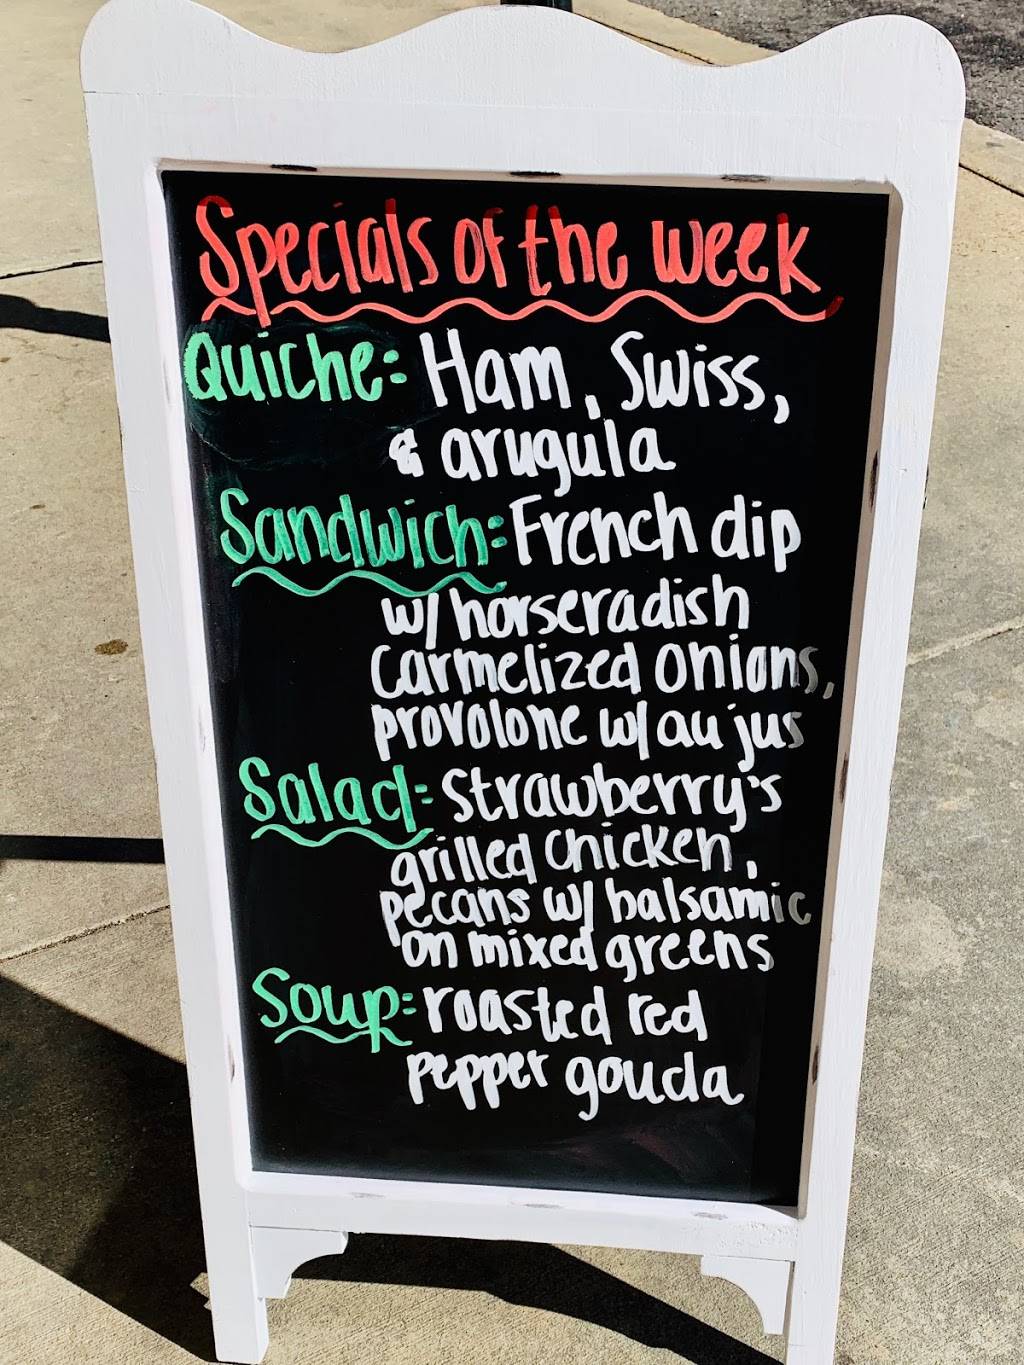 Specials of the week
Quiche: Ham, Swiss,
& arugula
Sandwich: French dip
w/ horseradish
carmelized onions,
provolone w/ au jus
Salad: Strawberry's
grilled chicken,
pecans w/ balsamic
on mixed greens
Soup: roasted red
pepper gouda